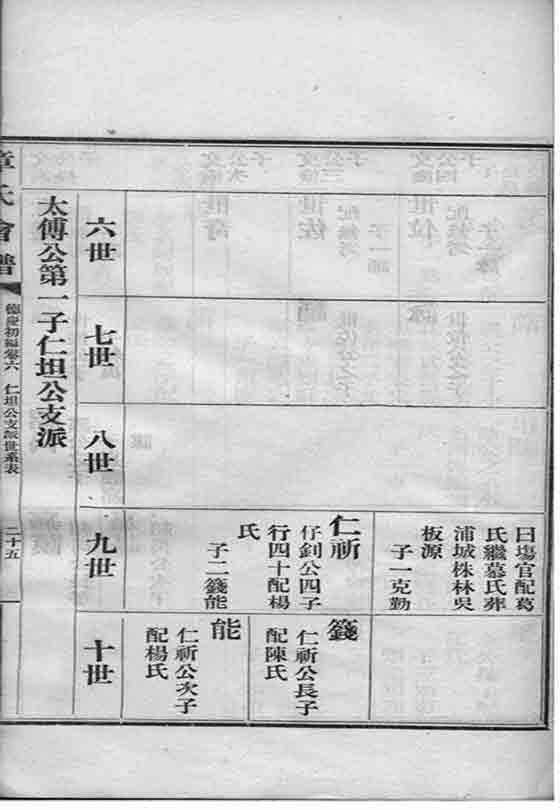 曰塲官配葛
氏繼慕氏葬
浦城株林吳
板源
子一克勤
仁祈
仔釗公四子
行四十配楊
氏
子二籛能
籛
仁祈公長子
配陳氏
能
仁祈公次子
配楊氏
六世
七世
八世
九世
十世
太傅公第一子仁坦公支派
章氏會譜
德慶初編卷六
仁坦公支派世系表
二十五